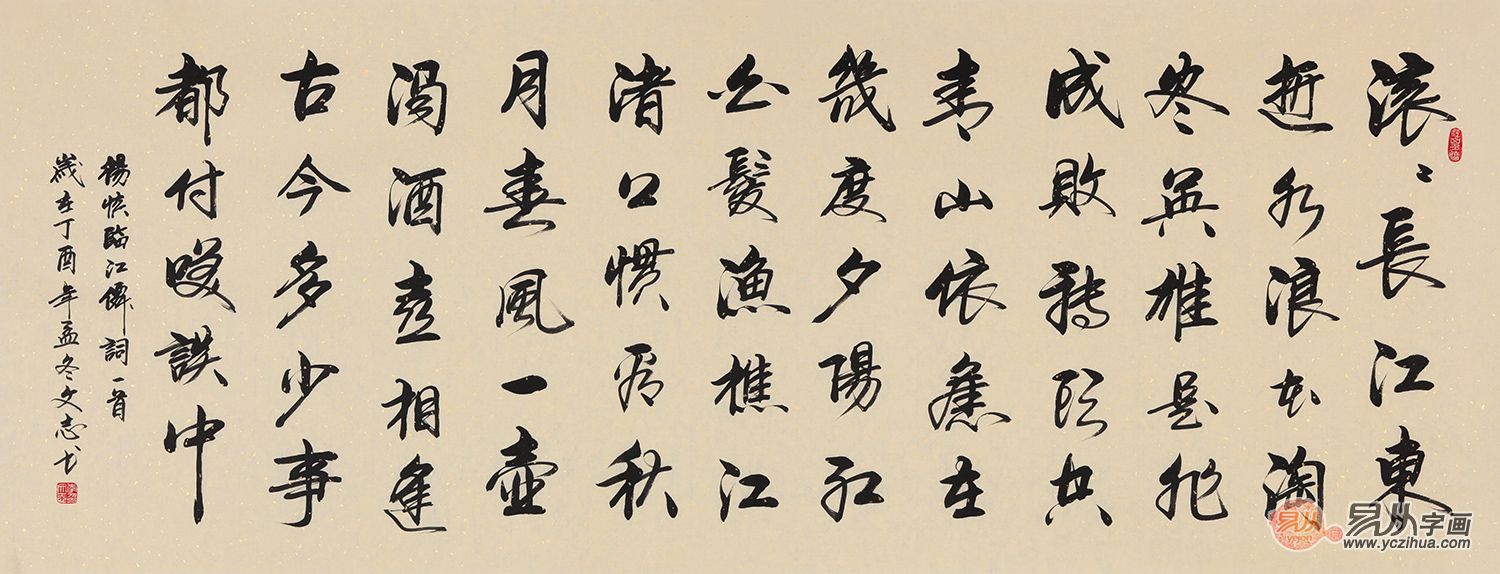 滚〻長江東
逝水浪花淘
尽英雄是非
成敗转头空
青山依舊在
幾度夕陽红
白髮渔樵江
渚口惯看秋
月春風一壺
濁酒喜相逢
古今多少事
都付咲談中
楊慎臨江僊詞一首
歲在丁酉年孟冬文志书
易从字画
www.yczihua.com